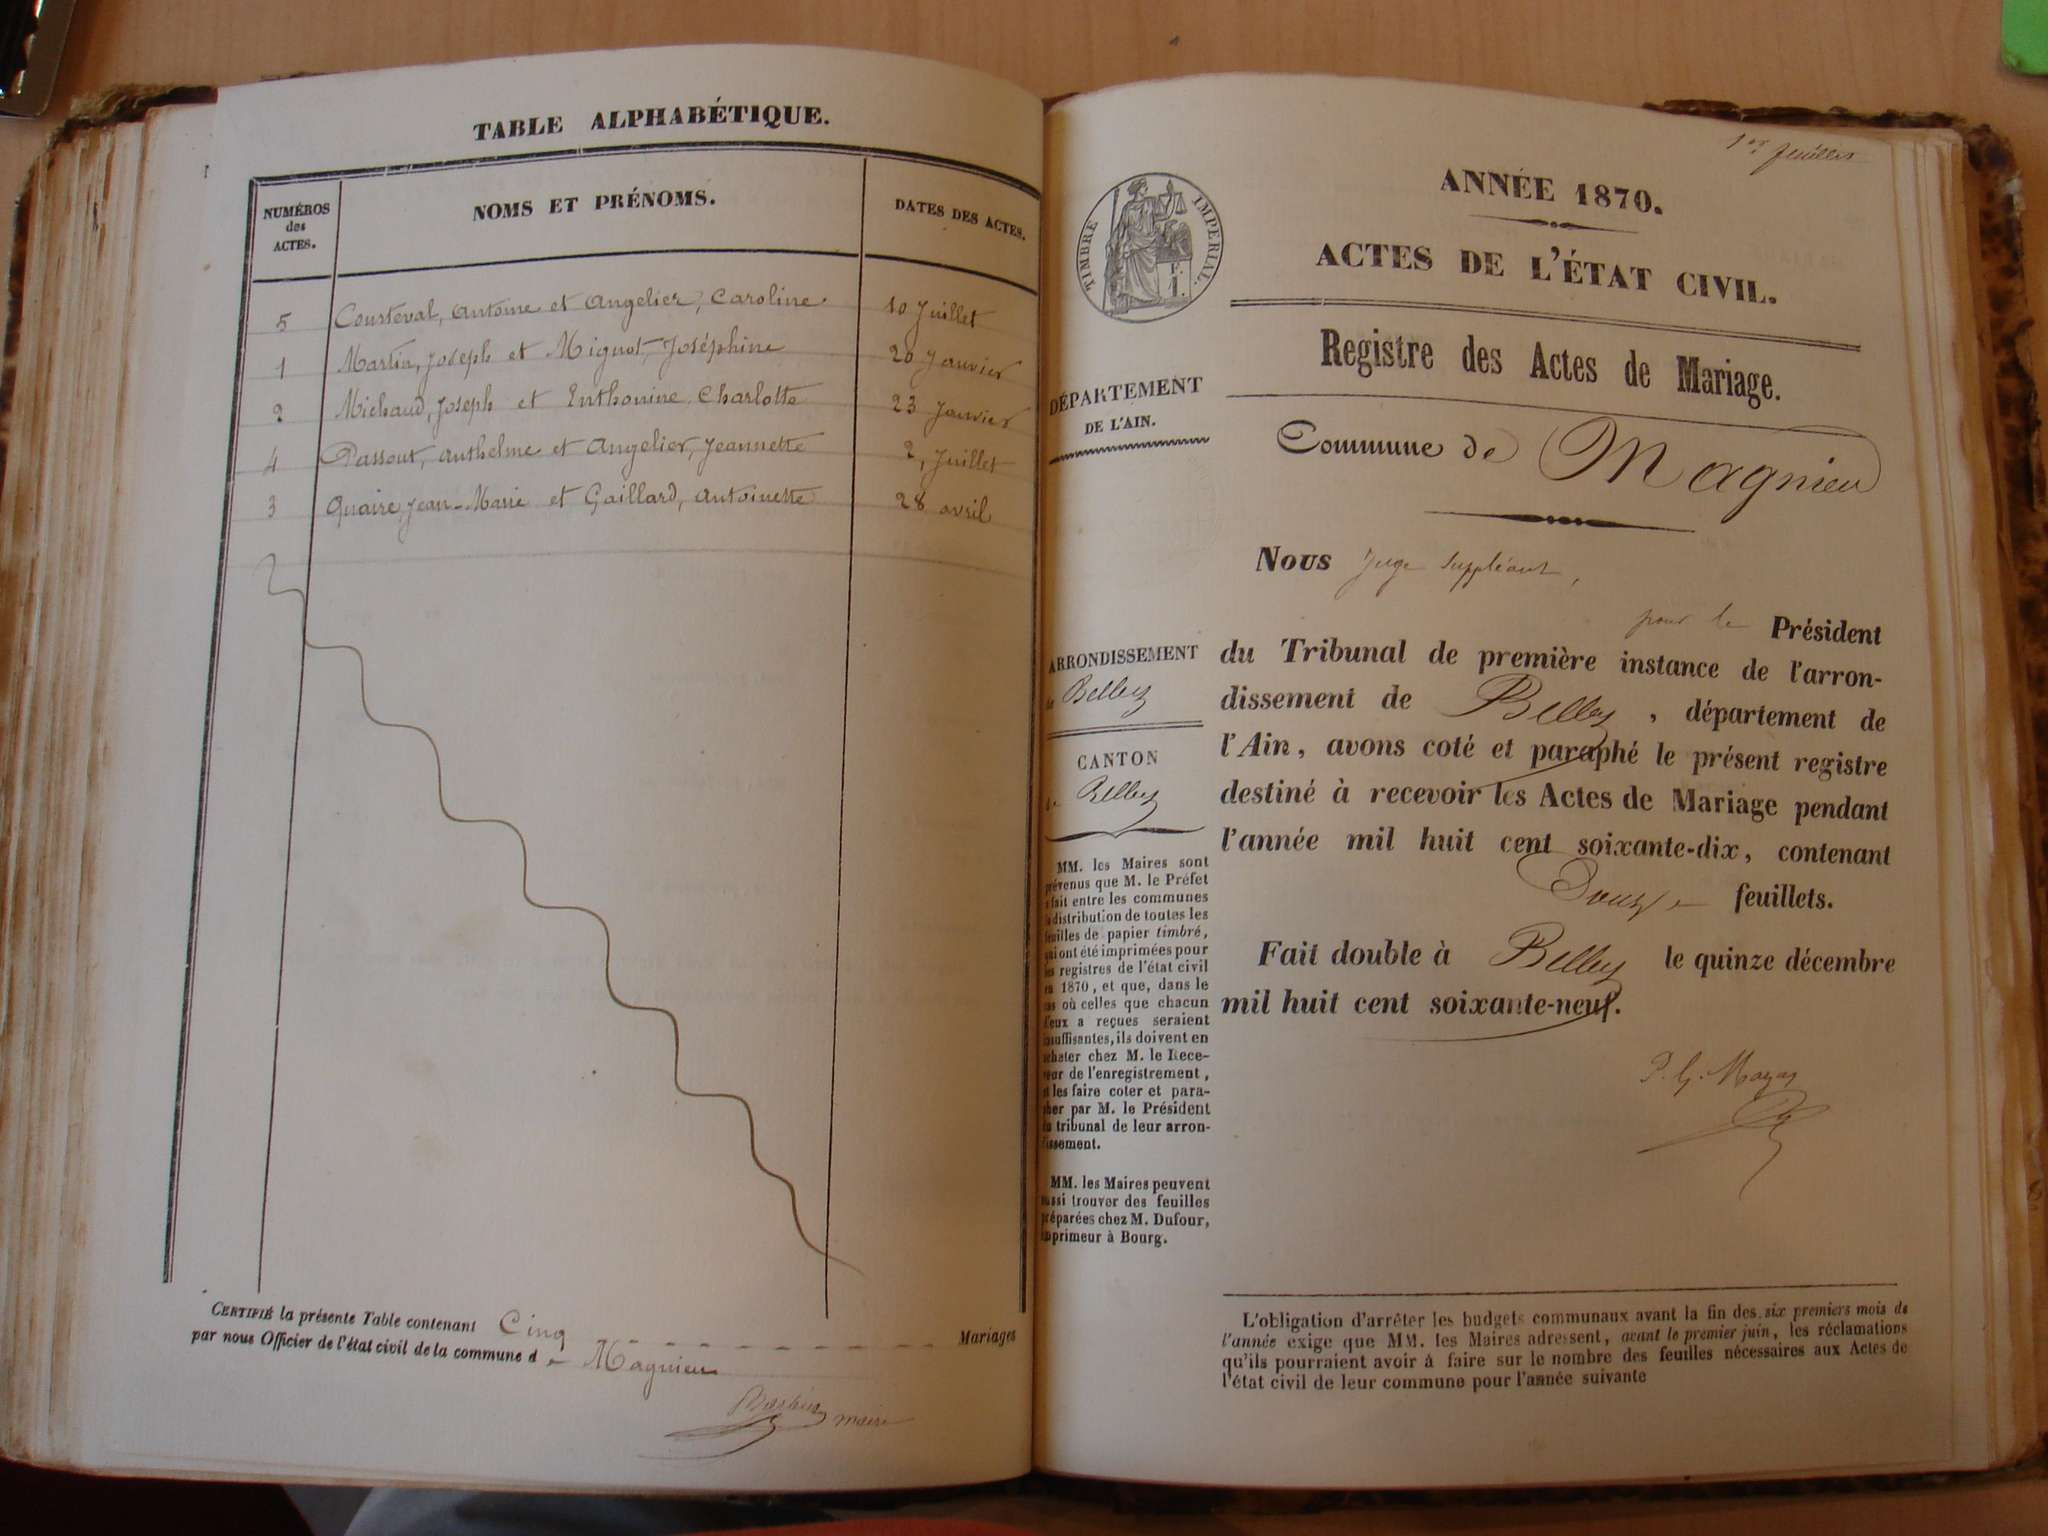 TABLE ALPHABÉTIQUE.
NUMÉROS des ACTES.
NOMS ET PRÉNOMS.
DATES DES ACTES.
5 Courteval, Antoine et Angelier, Caroline. 10 Juillet
1 Martin, Joseph et Mignot, Joséphine 20 Janvier
2 Michaud, Joseph et Enthonine, Charlotte 23 Janvier
4 Passout, Anthelme et Angelier, Jeannette 2, Juillet
3 Quaire, Jean-Marie et Gaillard, Antoinette 28 avril
CERTIFIÉ la présente Table contenant Cinq Mariages
par nous Officier de l'état civil de la commune de Magnieu
maire
1er feuillet
ANNÉE 1870.
ACTES DE L'ÉTAT CIVIL.
TIMBRE IMPERIAL.
Registre des Actes de Mariage.
DÉPARTEMENT
DE L'AIN.
Commune de Magnieu
Nous Juge Suppléant,
pour le Président
du Tribunal de première instance de l'arron-
dissement de Belley, département de
l'Ain, avons coté et paraphé le présent registre
destiné à recevoir les Actes de Mariage pendant
l'année mil huit cent soixante-dix, contenant
Douze feuillets.
Fait double à Belley le quinze décembre
mil huit cent soixante-neuf.
P. G. Mazas
ARRONDISSEMENT
de Belley
CANTON
de Belley
MM. les Maires sont
prévenus que M. le Préfet
a fait entre les communes
la distribution de toutes les
feuilles de papier timbré,
qui ont été imprimées pour
les registres de l'état civil
en 1870, et que, dans le
cas où celles que chacun
d'eux a reçues seraient
insuffisantes, ils doivent en
acheter chez M. le Rece-
veur de l'enregistrement,
et les faire coter et para-
pher par M. le Président
du tribunal de leur arron-
dissement.
MM. les Maires peuvent
aussi trouver des feuilles
préparées chez M. Dufour,
imprimeur à Bourg.
L'obligation d'arrêter les budgets communaux avant la fin des six premiers mois de
l'année exige que MM. les Maires adressent, avant le premier juin, les réclamations
qu'ils pourraient avoir à faire sur le nombre des feuilles nécessaires aux Actes de
l'état civil de leur commune pour l'année suivante